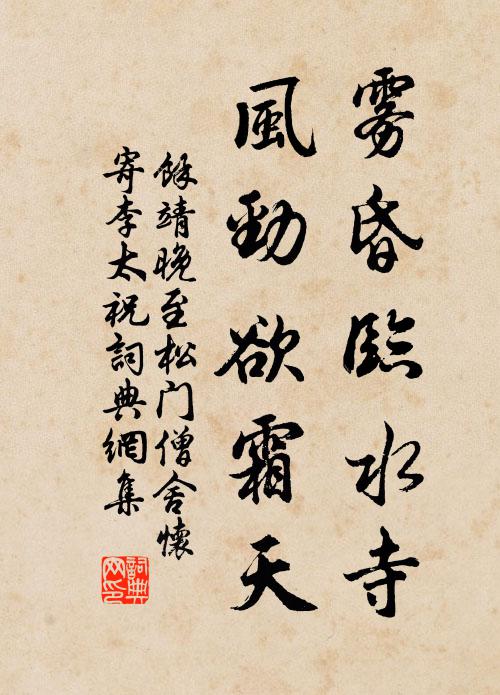 雾昏臨水寺
風勁欲霜天
餘靖晚至松门僧舍懷
寄李太祝詞典網集
詞典
网印